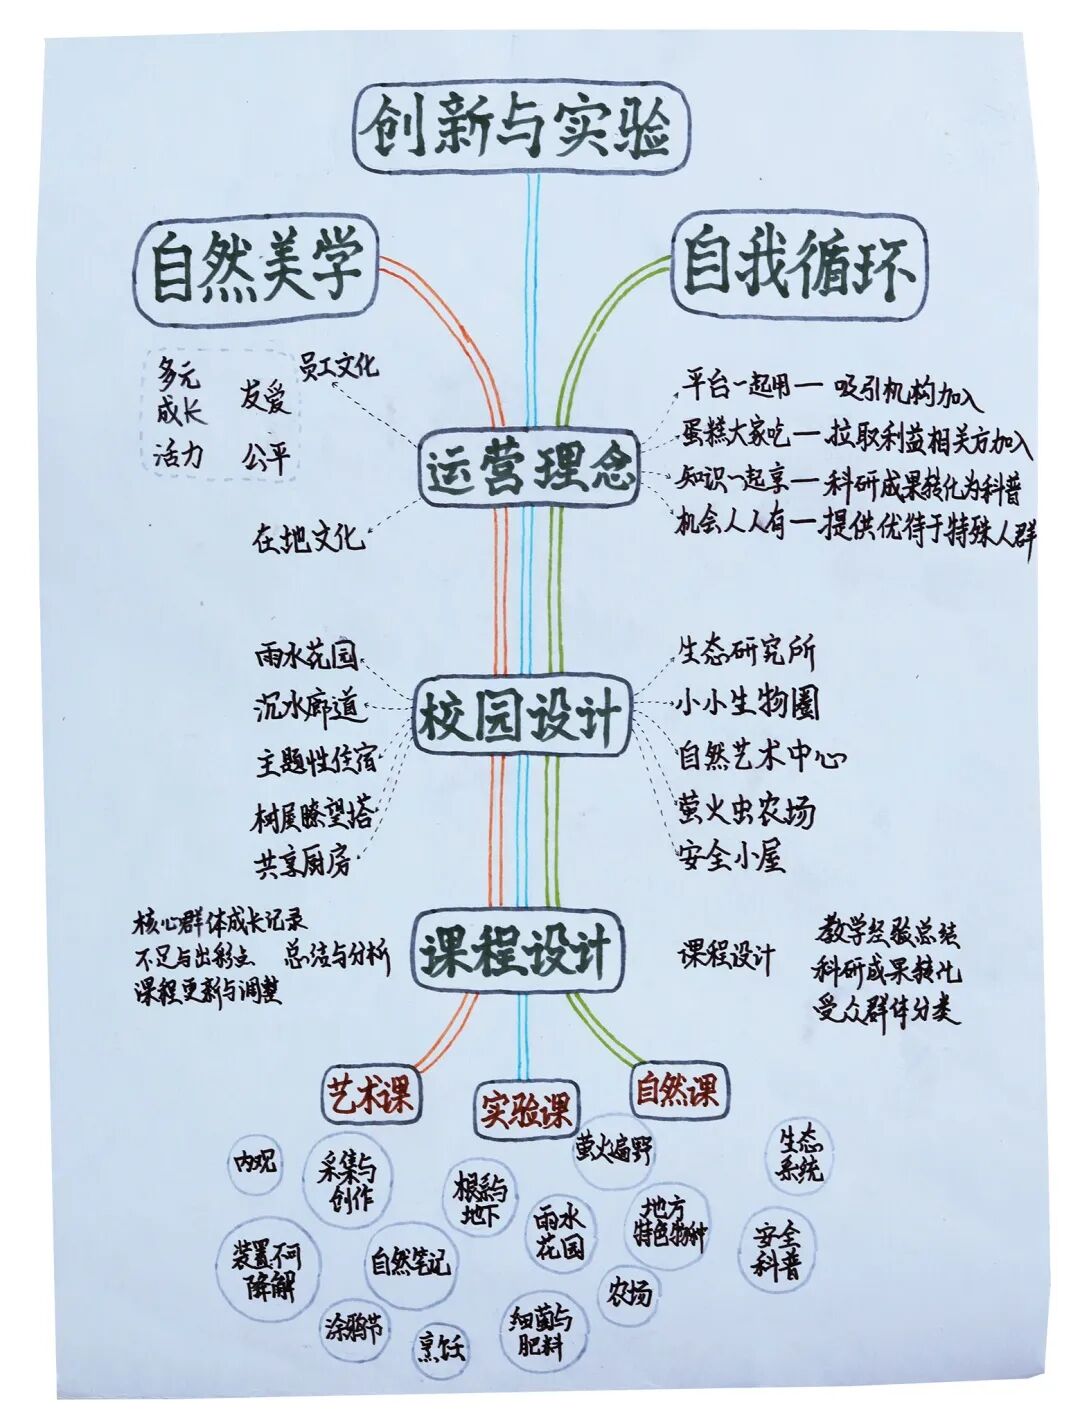 创新与实验
自然美学
自我循环
员工文化
多元
成长
友爱
活力
公平
平台一起用—吸引机构加入
蛋糕大家吃—拉取利益相关方加入
运营理念
知识一起享—科研成果转化为科普
机会人人有—提供优待于特殊人群
在地文化
雨水花园
沉水廊道
主题性住宿
树屋瞭望塔
共享厨房
校园设计
生态研究所
小小生物圈
自然艺术中心
萤火虫农场
安全小屋
核心群体成长记录
不足与出彩点 总结与分析
课程更新与调整
课程设计
课程设计
教学经验总结
科研成果转化
受众群体分类
艺术课
实验课
自然课
内观
采集与
创作
根系与
地下
萤火遍野
生态
系统
装置不可
降解
自然笔记
雨水
花园
地方
特色物种
安全
科普
涂鸦节
烹饪
细菌与
肥料
农场